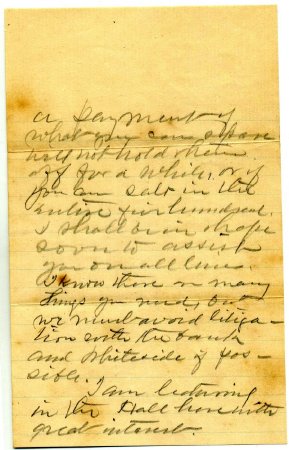 a payment of
what you can spare
will not hold them
off for a while, or if
you can salt in the
entire five hundred.
I shall be in shape
soon to assist
you on all lines.
I know there are many
things you need, but
we must avoid litiga-
tion with the bank
and Whiteside if pos-
sible.
I am lecturing
in the Hall here with
great interest.